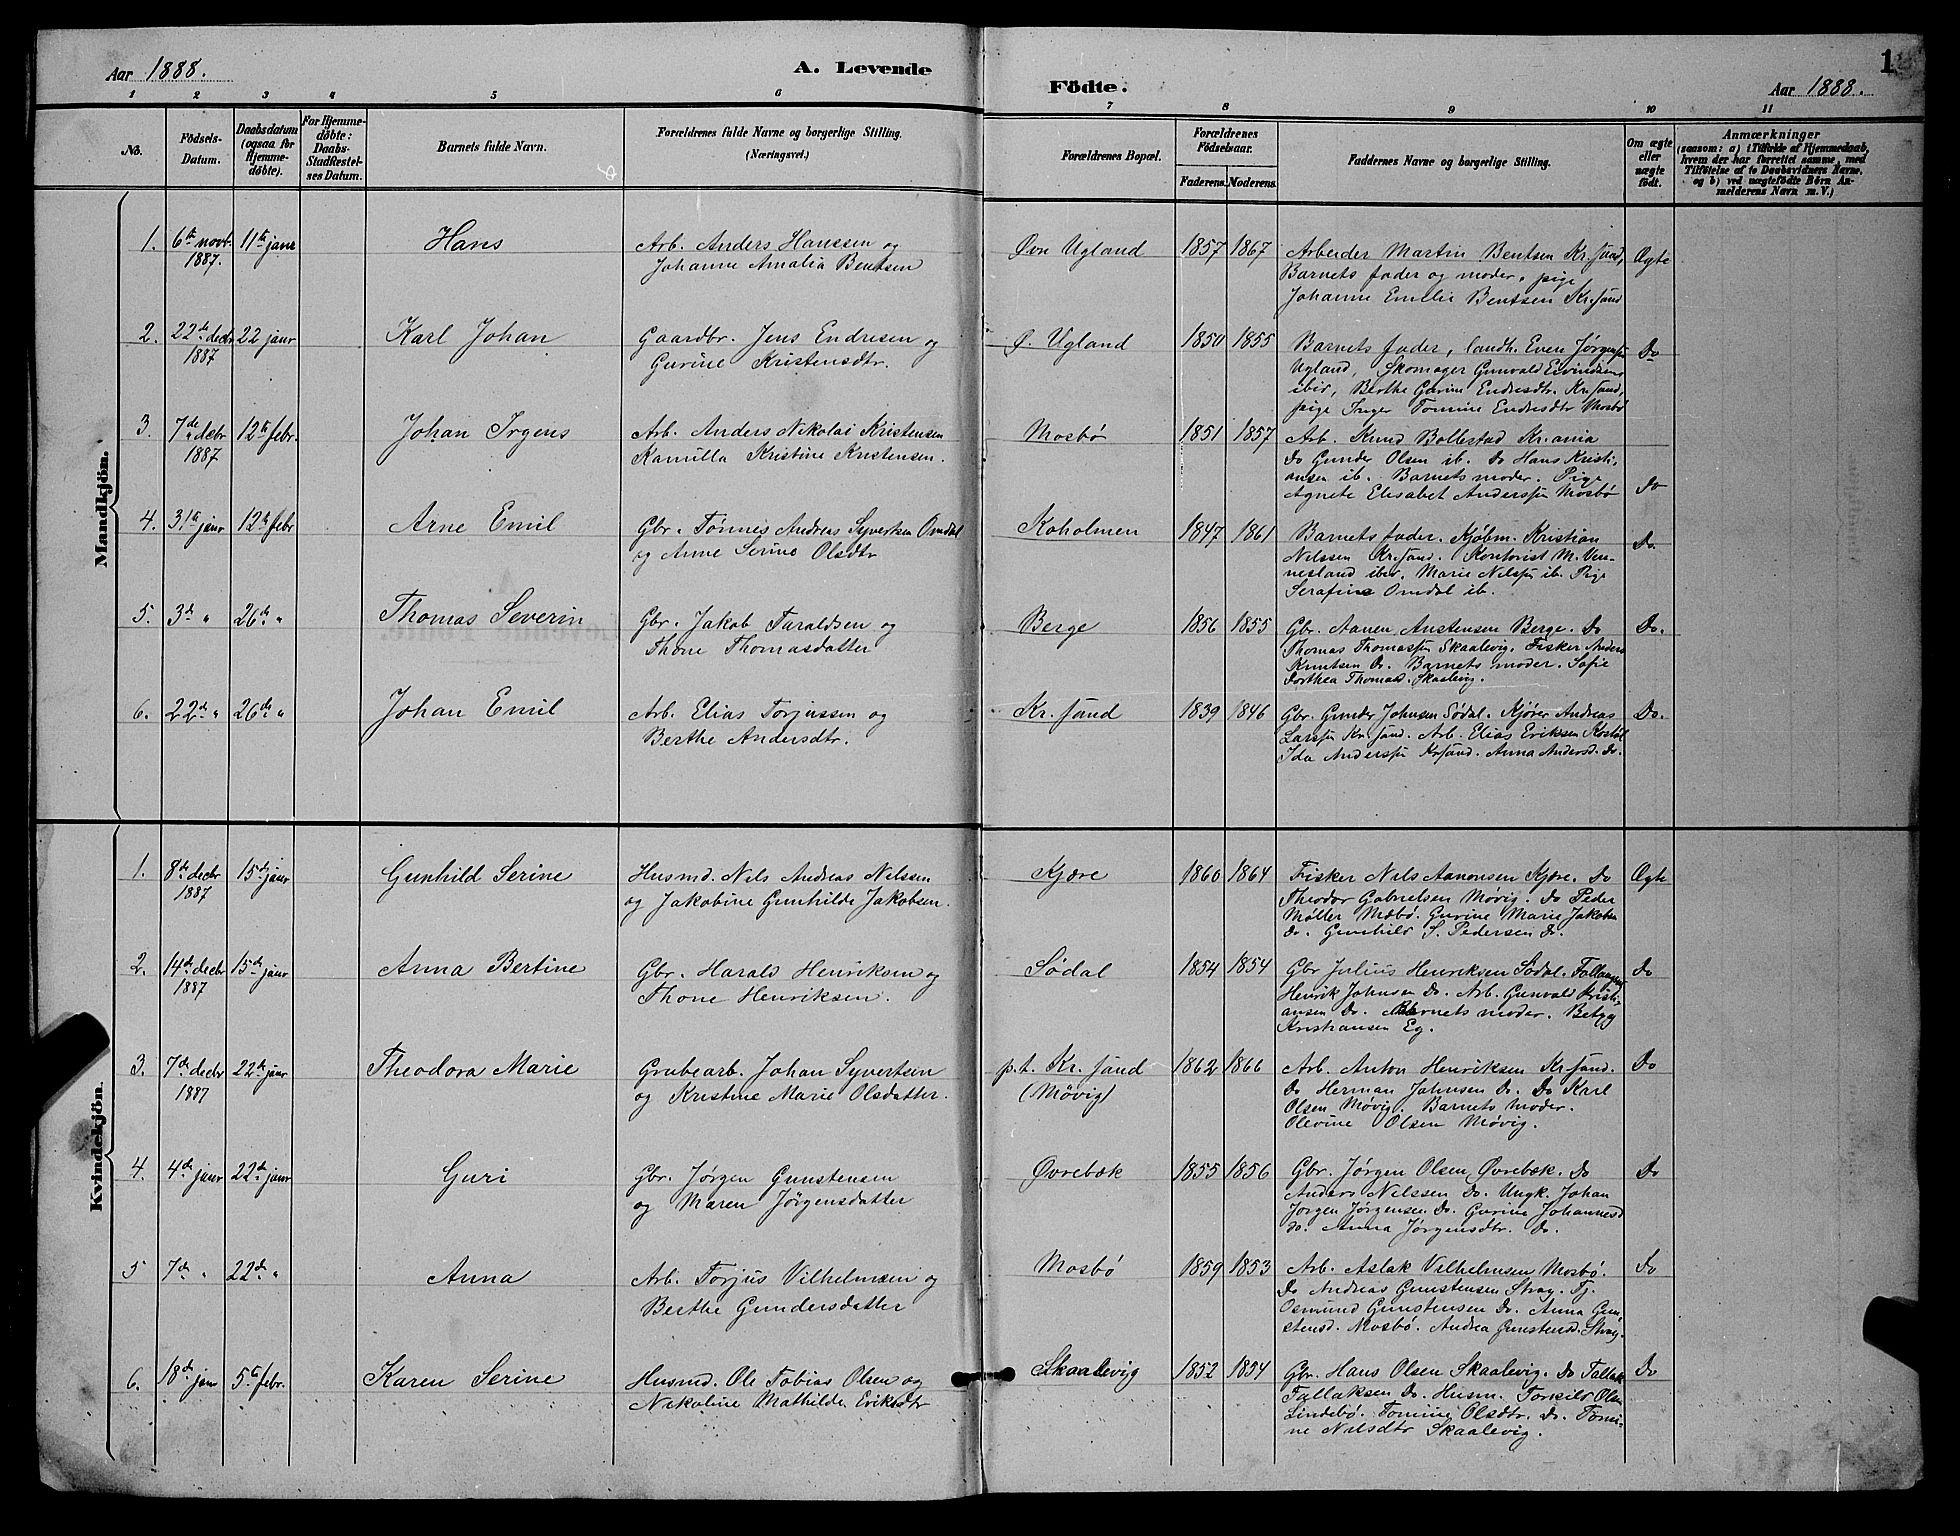 Aar 1888.
A. Levende
Födte.
Aar 1888.
1
1 2 3 4 5 6 7 8 9 10 11
No.
Födsels-
Datum.
Daabsdatum
(ogsaa for
Hjemme-
döbte).
For Hjemme-
döbte:
Daabs-
Stadfestel-
ses Datum.
Barnets fulde Navn.
Forældrenes fulde Navne og borgerlige Stilling.
(Næringsvei.)
Forældrenes Bopæl.
Forældrenes
Födselsaar.
Faderens. Moderens.
Faddernes Navne og borgerlige Stilling.
Om ægte
eller
uægte
födt.
Anmærkninger
(saasom: a) i Tilfælde af Hjemmedaab,
hvem der har forrettet samme, med
Tilföielse af to Daabsvidners Navne,
og b) ved uægtefödte Börn An-
melderens Navn m. V.)
Mandkjön.
1. 6te novbr 1887. 11te janr
Hans
Arb. Anders Hanssen og
Johanne Amalia Bentsen
Øvre Ugland
1857 1867
Arbeider Martin Bentsen Kr.sand,
Barnets fader og moder, pige
Johanne Emilie Bentsen Kr.sand
Ægte
2. 22de decbr 1887 22 janr
Karl Johan
Gaardbr. Jens Endresen og
Gurine Kristensdtr.
Ø. Ugland
1850 1855
Barnets fader, landh. Even Jørgensen
Ugland, Skomager Gunvald Eivindsen
ibid, Berthe Gurine Endresdtr. Kr.sand,
pige Inger Tomine Endresdtr Mosbø
Do
3. 7de decbr 1887 12te febr.
Johan Irgens
Arb. Anders Nikolai Kristensen
Kamilla Kristine Kristensen.
Mosbø
1851 1857
Arb. Knud Bollestad Kr.ania
Do Gunder Olsen ib. Do Hans Kristi-
ansen ib. Barnets moder. Pige
Agnete Elisabet Anderssen Mosbø
Do
4. 31te janr 12te febr
Arne Emil
Gbr. Tønnes Andreas Syvertsen Omdal
og Anne Serine Olsdtr
Koholmen
1847 1861
Barnets fader. Kjøbm. Kristian
Nilssen Kr.sand. Kontorist M. Ven-
nesland iber. Marie Nilssen ib. Pige
Serafine Omdal ib.
Do.
5. 3de " 26de "
Thomas Severin
Gbr. Jakob Taraldsen og
Thone Thomasdatter
Berge
1856 1855
Gbr. Aanen Austensen Berge. Do
Thomas Thomassen Skaalevig. Fisker Anders
Knutsen Do. Barnets moder. Sofie
Dorthea Thomasd. Skaalevig.
Do.
6. 22de " 26de "
Johan Emil
Arb. Elias Torjussen og
Berthe Andersdtr.
Kr.sand
1839 1846
Gbr. Gunder Johnsen Sødal. Kjører Andreas
Larssen Kr.sand. Arb. Elias Eriksen
Ida Anderssen Kr.sand. Anna Andersd. Do.
Do.
Kvindekjön.
1. 8de decbr 1887 15de janr
Gunhild Serine
Husmd. Nils Andreas Nilssen
og Jakobine Gunhilde Jakobsen.
Kjære
1860 1864
Fisker Nils Aanonsen Kjære. Do
Theodor Gabrielsen Møvig. Do Peder
Møller Mæbø. Gurine Marie Jakobsen
Do. Gunhild S. Pedersen Do.
Ægte
2. 14de decbr 1887 15de janr
Anna Bertine
Gbr. Harald Henriksen og
Thone Henriksen.
Sødal
1854 1854
Gbr Julius Henriksen Sødal.
Henrik Johnsen Do. Arb. Gunvald Kristi-
ansen Do. Barnets moder. Betzy
Kristiansen Eg.
Do
3. 7de decbr 1887 22de janr
Theodora Marie
Grubearb. Johan Syvertsen
og Kristine Marie Olsdatter.
p.t. Kr.sand
(Møvig)
1862 1866
Arb. Anton Henriksen Kr.sand.
Do Herman Johnsen Do. Do Karl
Olsen Møvig. Barnets Moder.
Olevine Olsen Møvig.
Do
4. 4de janr 22de janr
Guri
Gbr. Jørgen Gunstensen
og Maren Jørgensdatter
Øvrebæk
1855 1856
Gbr. Jørgen Olsen Øvrebæk. Do
Anders Nilssen Do. Ungk. Johan
Jørgen Jørgensen Do. Gurine Johannesd
Do. Anna Jørgensdtr. Do.
Do
5 7de " 22de "
Anna
Arb. Torjus Vilhelmsen og
Berthe Gundersdatter
Mosbø
1859 1853
Arb. Aslak Vilhelmsen Mosbø.
Do Andreas Gunstensen Stray. Tj.
Osmund Gunstensen Do. Anna Gun-
stensd. Mosbø. Andrea Gunstensd. Stray.
Do
6. 18de janr 5te febr.
Karen Serine
Husmd. Ole Tobias Olsen og
Nikoline Mathilde Eriksdtr
Skaalevig
1852 1854
Gbr. Hans Olsen Skaalevig. Do Tallak
Tallaksen Do. Husm. Torkild Olsen
Lindebø. Tomine Olsdtr. Do. Tomi-
ne Nilsdtr Skaalevig.
Do